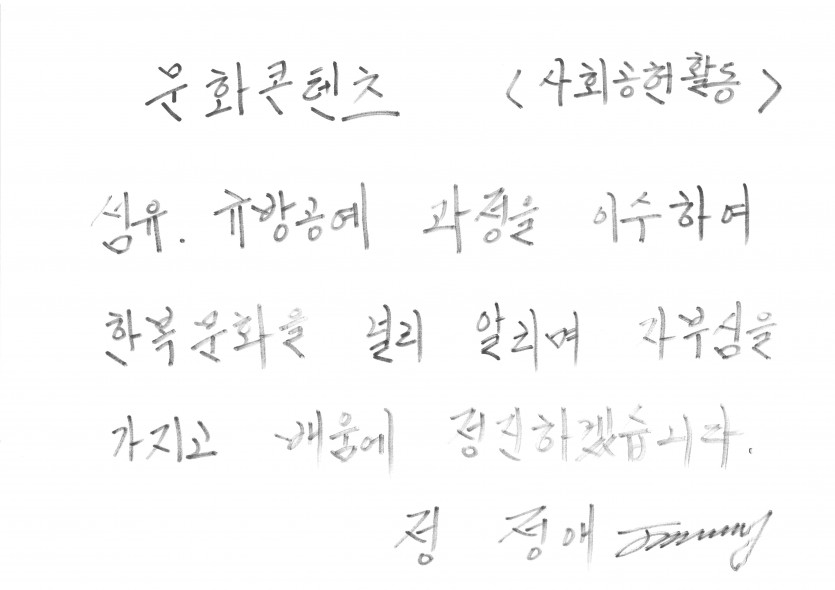 문화콘텐츠 <사회공헌활동>
섬유. 규방공예 과정을 이수하여
한복문화을 널리 알리며 자부심을
가지고 배움에 정진하겠습니다.
정 정애